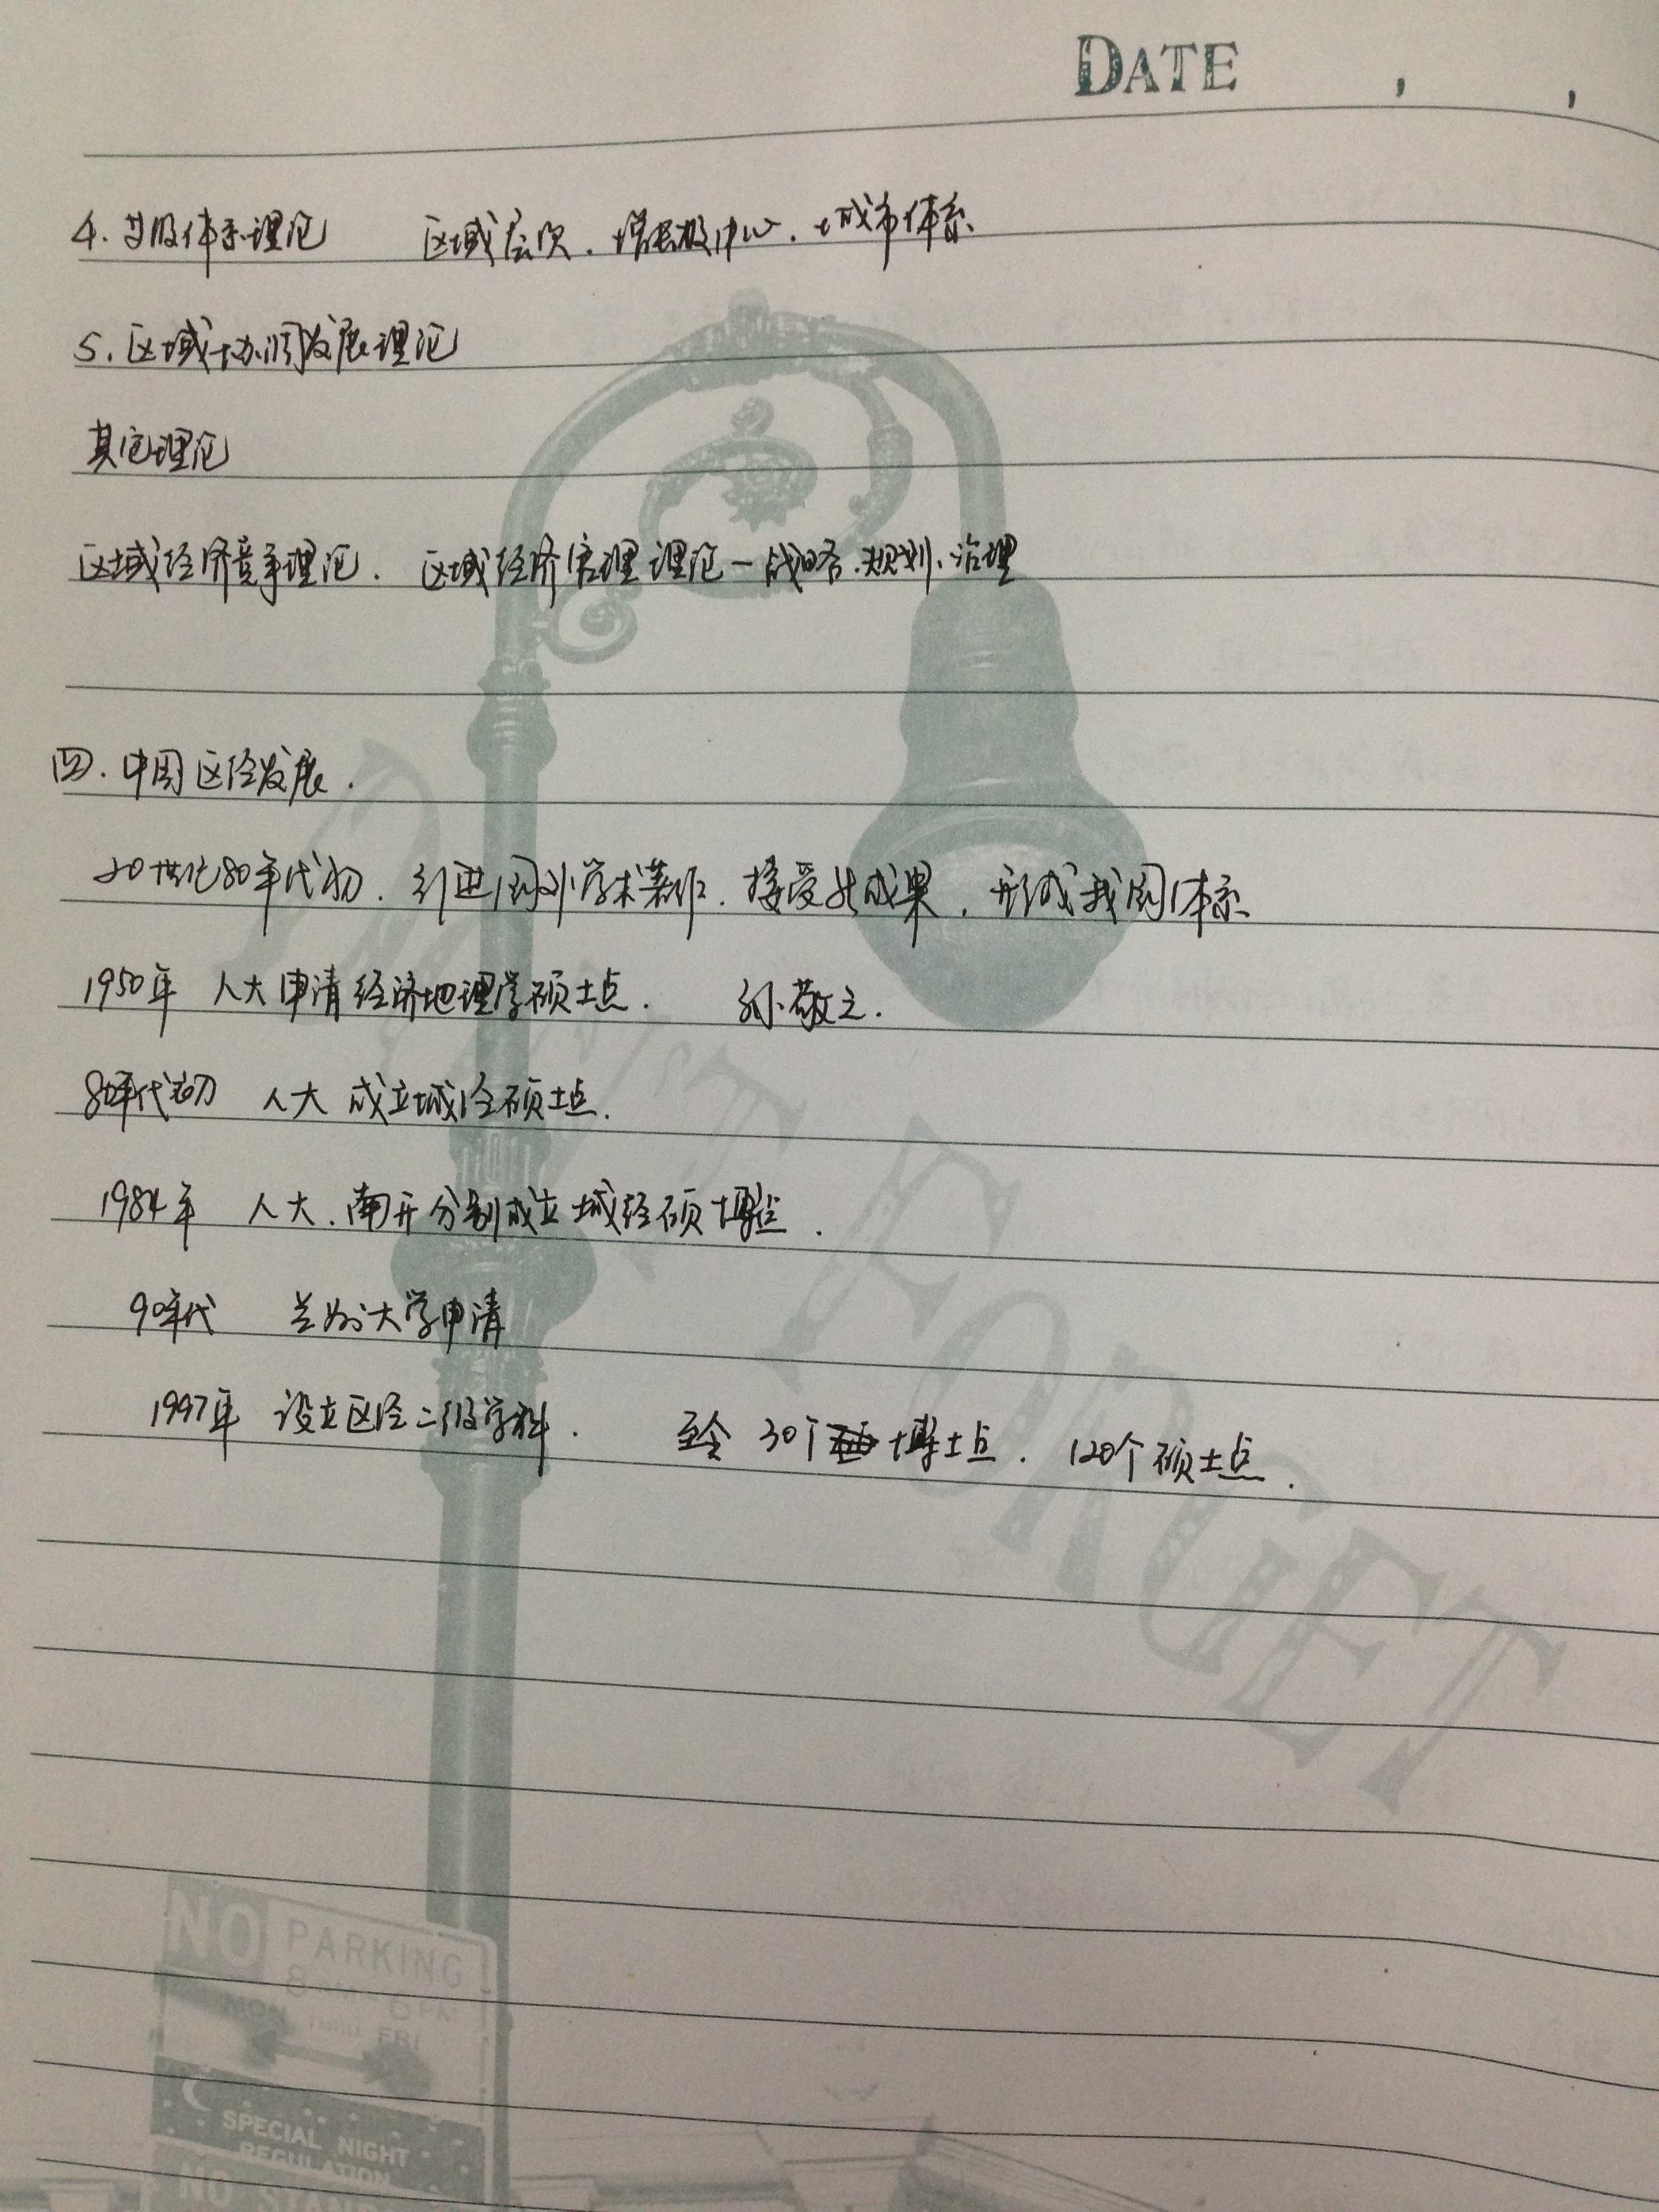 DATE , ,
4. 等级体系理论 区域层次、增长极中心、城市体系
5. 区域协调发展理论
其它理论
区域经济竞争理论. 区域经济管理理论—战略、规划、治理
四. 中国区经发展.
20世纪80年代初. 引进国外学术著作. 接受其成果, 形成我国体系
1950年 人大申请经济地理学硕士点. 孙敬之.
80年代初 人大 成立城经硕士点.
1984年 人大、南开分别成立城经硕博点.
90年代 兰州大学申请
1997年 设立区经二级学科. 至今 30个博士点. 120个硕士点.
DON'T FORGET
NO PARKING
8AM 6PM
MON THRU FRI
SPECIAL NIGHT
REGULATION
NO STAND